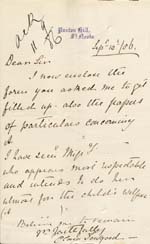 Paxton Hill,
St Neots
Sept 12th/06.
Dear Sir
I now enclose the
form you asked me to get
filled up - also the papers
of particulars concerning
it
I have seen
who appears most respectable
and intends to do her
utmost for the child's welfare
Believe me to remain
Yrs faithfully